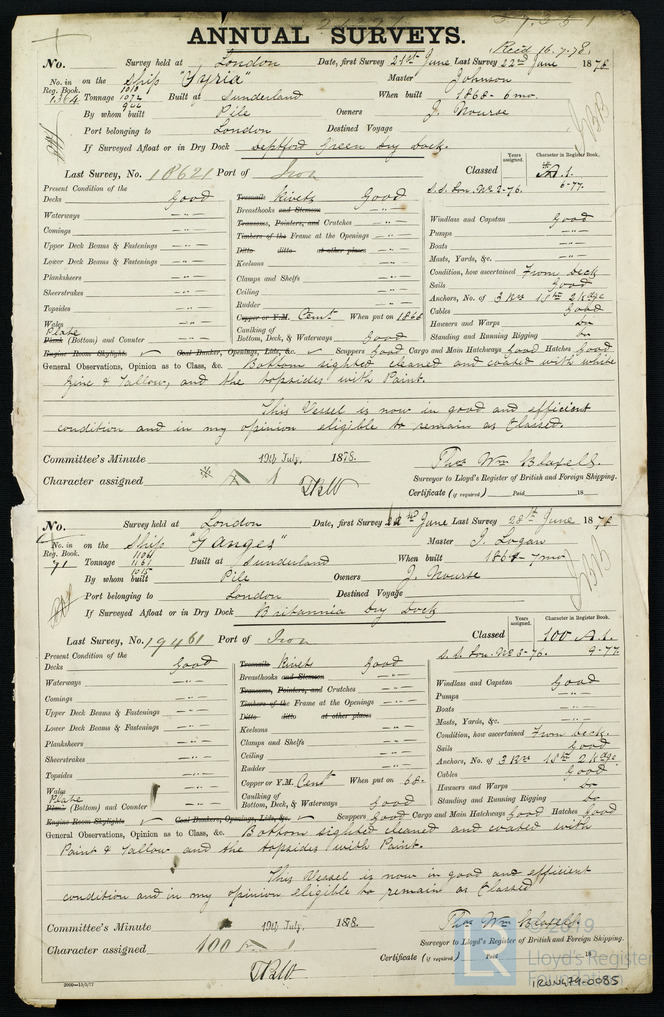 ANNUAL SURVEYS.
Recd 16.7.78.
No. Survey held at London Date, first Survey 21st June Last Survey 22nd June 1878
No. in on the Ship "Syria" Master Johnson
Reg. Book.
1364 Tonnage 1010 1072 Built at Sunderland When built 1868 - 6 mo.
By whom built Pile Owners J. Nourse
Port belonging to London Destined Voyage
If Surveyed Afloat or in Dry Dock Deptford Green Dry Dock.
Last Survey, No. 18621 Port of Iron Classed
Years assigned. Character in Register Book.
A.1.
S.S. Lon. No. 2-76. 6-77.
Present Condition of the
Decks Good
Waterways — " —
Comings — " —
Upper Deck Beams & Fastenings — " —
Lower Deck Beams & Fastenings — " —
Planksheers — " —
Sheerstrakes — " —
Topsides — " —
Wales — " —
Plate
Plank (Bottom) and Counter — " —
Treenails Rivets Good
Breasthooks and Stemson — " —
Transoms, Pointers, and Crutches — " —
Timbers of the Frame at the Openings — " —
Ditto ditto at other places — " —
Keelsons — " —
Clamps and Shelfs — " —
Ceiling — " —
Rudder — " —
Copper or Y.M. Cent When put on 1868
Caulking of
Bottom, Deck, & Waterways Good
Windlass and Capstan Good
Pumps — " —
Boats — " —
Masts, Yards, &c. — " —
Condition, how ascertained From deck
Sails Good
Anchors, No. of 3 Brs 1 Strm 2 Kdge
Cables Good
Hawsers and Warps Do
Standing and Running Rigging Do
Engine Room Skylights ✓ Coal Bunker, Openings, Lids, &c. ✓ Scuppers Good Cargo and Main Hatchways Good Hatches Good
General Observations, Opinion as to Class, &c. Bottom sighted cleaned and coated with white
Zinc & Tallow, and the topsides with Paint.
This Vessel is now in good and efficient
condition and in my opinion eligible to remain as Classed.
Committee's Minute 19th July, 1878.
Character assigned A 1
Thos Wm Blaxell.
Surveyor to Lloyd's Register of British and Foreign Shipping.
Certificate (if required) Paid 18
No. Survey held at London Date, first Survey 22nd June Last Survey 28th June 1878
No. in on the Ship "Ganges" Master J. Logan
Reg. Book.
71 Tonnage 1161 Built at Sunderland When built 1861 - 7 mo
By whom built Pile Owners J. Nourse
Port belonging to London Destined Voyage
If Surveyed Afloat or in Dry Dock Britannia Dry Dock
Last Survey, No. 19461 Port of Iron Classed
Years assigned. Character in Register Book.
100 A.1.
S.S. Lon. No. 3-76. 9-77
Present Condition of the
Decks Good
Waterways — " —
Comings — " —
Upper Deck Beams & Fastenings — " —
Lower Deck Beams & Fastenings — " —
Planksheers — " —
Sheerstrakes — " —
Topsides — " —
Wales — " —
Plate
Plank (Bottom) and Counter — " —
Treenails Rivets Good
Breasthooks and Stemson — " —
Transoms, Pointers, and Crutches — " —
Timbers of the Frame at the Openings — " —
Ditto ditto at other places — " —
Keelsons — " —
Clamps and Shelfs — " —
Ceiling — " —
Rudder — " —
Copper or Y.M. Cent When put on 68.
Caulking of
Bottom, Deck, & Waterways Good
Windlass and Capstan Good
Pumps — " —
Boats — " —
Masts, Yards, &c. — " —
Condition, how ascertained From deck.
Sails Good
Anchors, No. of 3 Brs 1 Strm 2 Kdge
Cables Good
Hawsers and Warps Do
Standing and Running Rigging Do
Engine Room Skylights ✓ Coal Bunkers, Openings, Lids, &c. ✓ Scuppers Good Cargo and Main Hatchways Good Hatches Good
General Observations, Opinion as to Class, &c. Bottom sighted cleaned and coated with
Paint & Tallow and the topsides with Paint.
This Vessel is now in good and efficient
condition and in my opinion eligible to remain as Classed
Committee's Minute 19th July, 1878.
Character assigned 100 A 1
Thos Wm Blaxell.
Surveyor to Lloyd's Register of British and Foreign Shipping.
Certificate (if required) Paid 18
2000—13/3/77
©2019
LR Lloyd's Register
Foundation
IRON479-0085